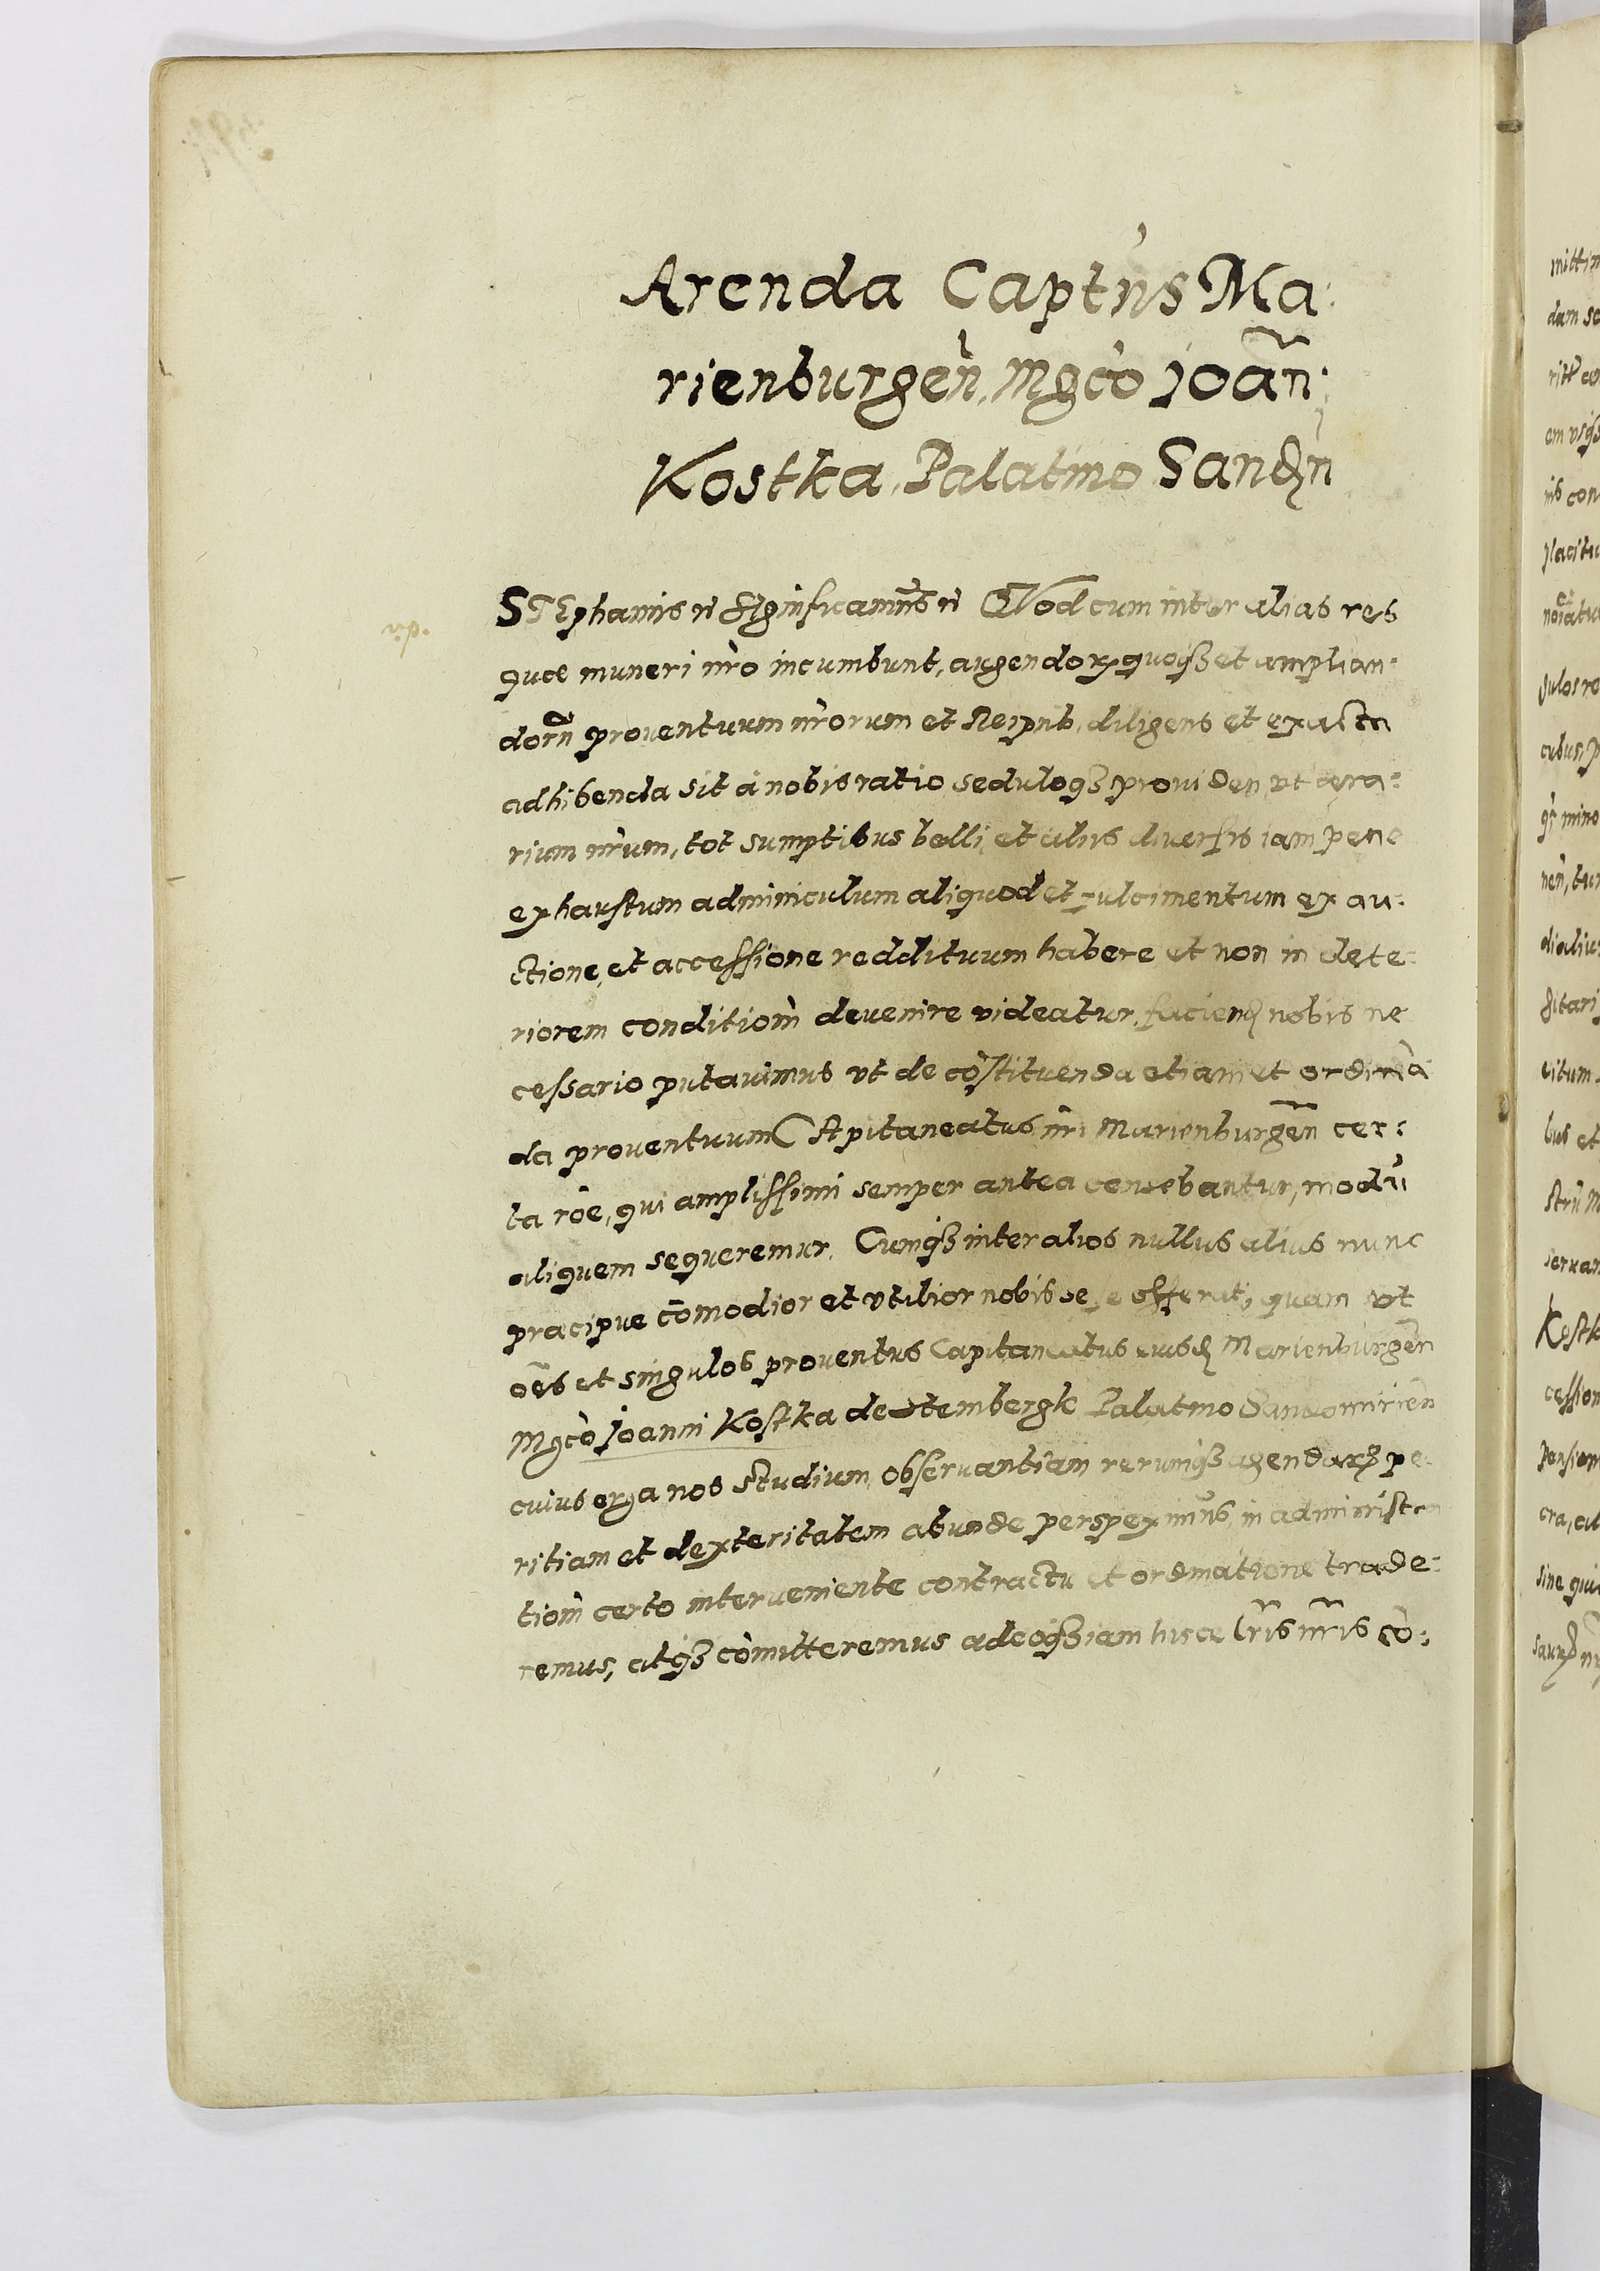 Arenda Captus Ma:
rienburgen̄, Mgco Joan̄:
Kostka, Palatino Sand̄n
STEphanus rc̄ Significamus rc̄ QVod cum inter alias res
quae muneri nr̄o incumbunt, augendorȝ quoqȝ et amplian:
dorū prouentuum nr̄orum et Reipub, diligens et exacta
adhibenda sit à nobis ratio seduloqȝ prouiden, vt aera:
rium nr̄um, tot sumptibus belli, et alijs diuersis iam pene
exhaustum adminiculum aliquod et fulcimentum ex au:
ctione, et accessione reddituum habere et non in dete:
riorem conditiom̄ deuenire videatur, faciend nobis ne
cessario putauimus vt de cōstituenda etiam et ordinā:
da prouentuum CApitaneatus nr̄i Marienburgen̄ cer:
ta rōe, qui amplissimi semper antea censebantur, modū
aliquem sequeremur. Cumqȝ inter alios nullus alius nunc
praecipue cōmodior et vtilior nobis sese offerat, quam vt
oēs et singulos prouentus Capitaneatus eiusd Marienburgen̄
Mgco Joanni Kostka de Stembergk Palatino Sandomirien̄
cuius erga nos studium, obseruantiam rerumqȝ agendarȝ pe
ritiam et dexteritatem abunde perspeximus, in administra
tiom̄ certo interueniente contractu et ordinatione trade:
remus, atqȝ cōmitteremus adeoqȝ iam hisce lr̄is nr̄is cō: